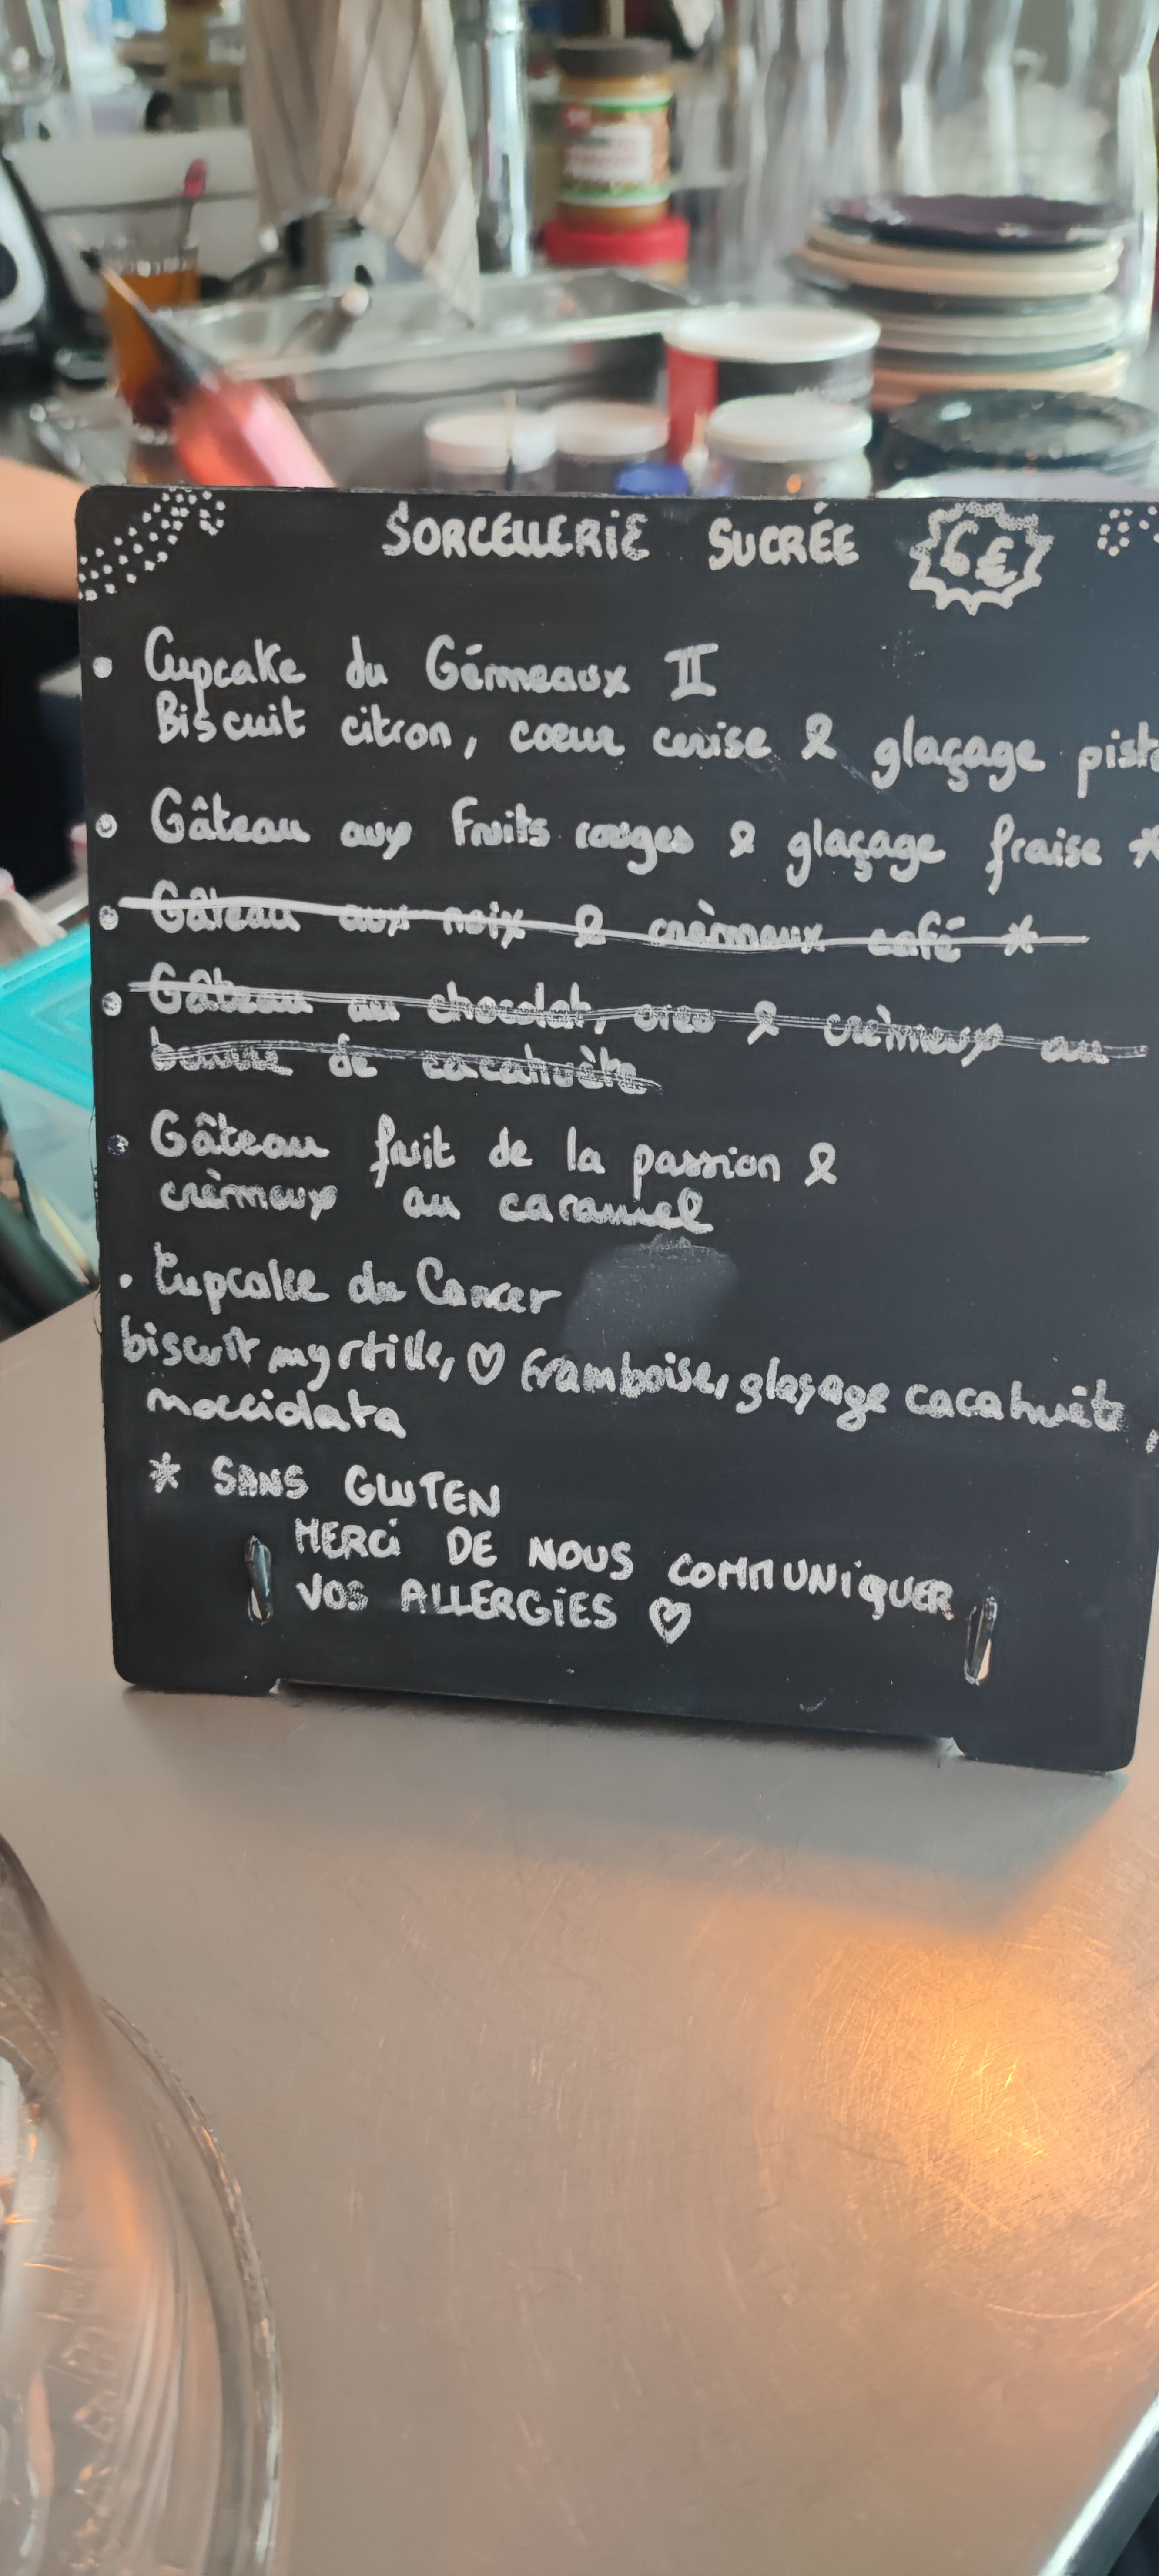 SORCELLERIE SUCRÉE 6€
• Cupcake du Gémeaux II
Biscuit citron, coeur cerise & glaçage
• Gâteau aux fruits rouges & glaçage fraise *
• Gâteau aux noix & crèmeux café *
• Gâteau au chocolat, oreo & crèmeux au
beurre de cacahuète
• Gâteau fruit de la passion &
crèmeux au caramel
• Cupcake du Cancer
biscuit myrtille, ♡ framboise, glaçage cacahuète,
* SANS GLUTEN
MERCI DE NOUS COMMUNIQUER
VOS ALLERGIES ♡